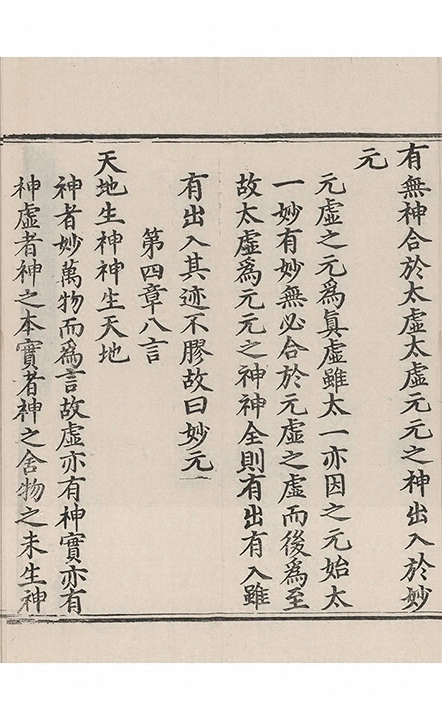 有無神合於太虛太虛元元之神出入於妙
元
元虛之元爲眞虛雖太一亦因之元始太
一妙有妙無必合於元虛之虛而後爲至
故太虛爲元元之神神全則有出有入雖
有出入其迹不膠故曰妙元
第四章八言
天地生神神生天地
神者妙萬物而爲言故虛亦有神實亦有
神虛者神之本實者神之舍物之未生神